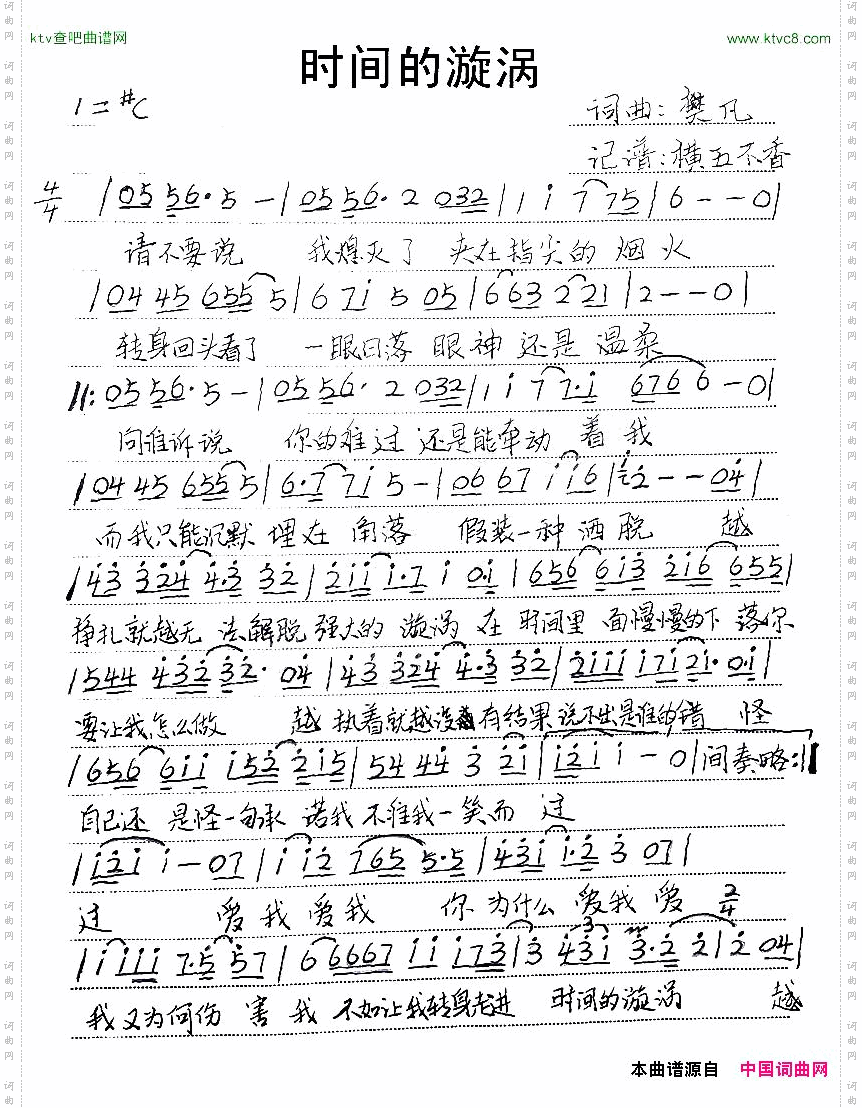 ktv查吧曲谱网
www.ktvc8.com
时间的漩涡
1=#C
词曲:樊凡
记谱:横五不香
4/4 |05 56·5 -|05 56· 2 032|1 i 7 775|6 - - 0|
请不要说 我熄灭了 夹在指尖的 烟火
|04 45 655 5|6 7i 5 05|663 2 221|2 - - 0|
转身回头看了 一眼日落 眼神 还是 温柔
||:05 56·5 -|05 56· 2 032|1 i 7 7·i 6766 - 0|
向谁诉说 你的难过 还是能牵动 着我
|04 45 655 5|6·7 7i 5 -|06 67 i i6|2 - - 04|
而我只能沉默 埋在 角落 假装一种 洒脱 越
|43 3324 4·3 32|2iii i·7 i 0·i|656 6i3 2i6 655|
挣扎就越无 法解脱 强大的 漩涡 在 时间里 面慢慢的下 落你
|544 4323 32· 04|43 3324 4·3 32|2iii i7i2i· 0·i|
要让我怎么做 越 执着就越没有结果 说不出是谁的错 怪
|656 6ii i522 2i5|54 44 3 2i|i2i i - 0|间奏略:||
自己还 是怪一句承 诺我 不准我一笑而 过
|i2i i - 07|i i2 765 5·5|43i i·2 3 07|
过 爱我爱我 你为什么 爱我 爱 2/4
|i iii 7·5 57|6 6667 ii i73|3 43i 3·2 2|2 04|
我又为何伤 害 我 不如让我转身走进 时间的漩涡 越
本曲谱源自 中国词曲网
词曲网